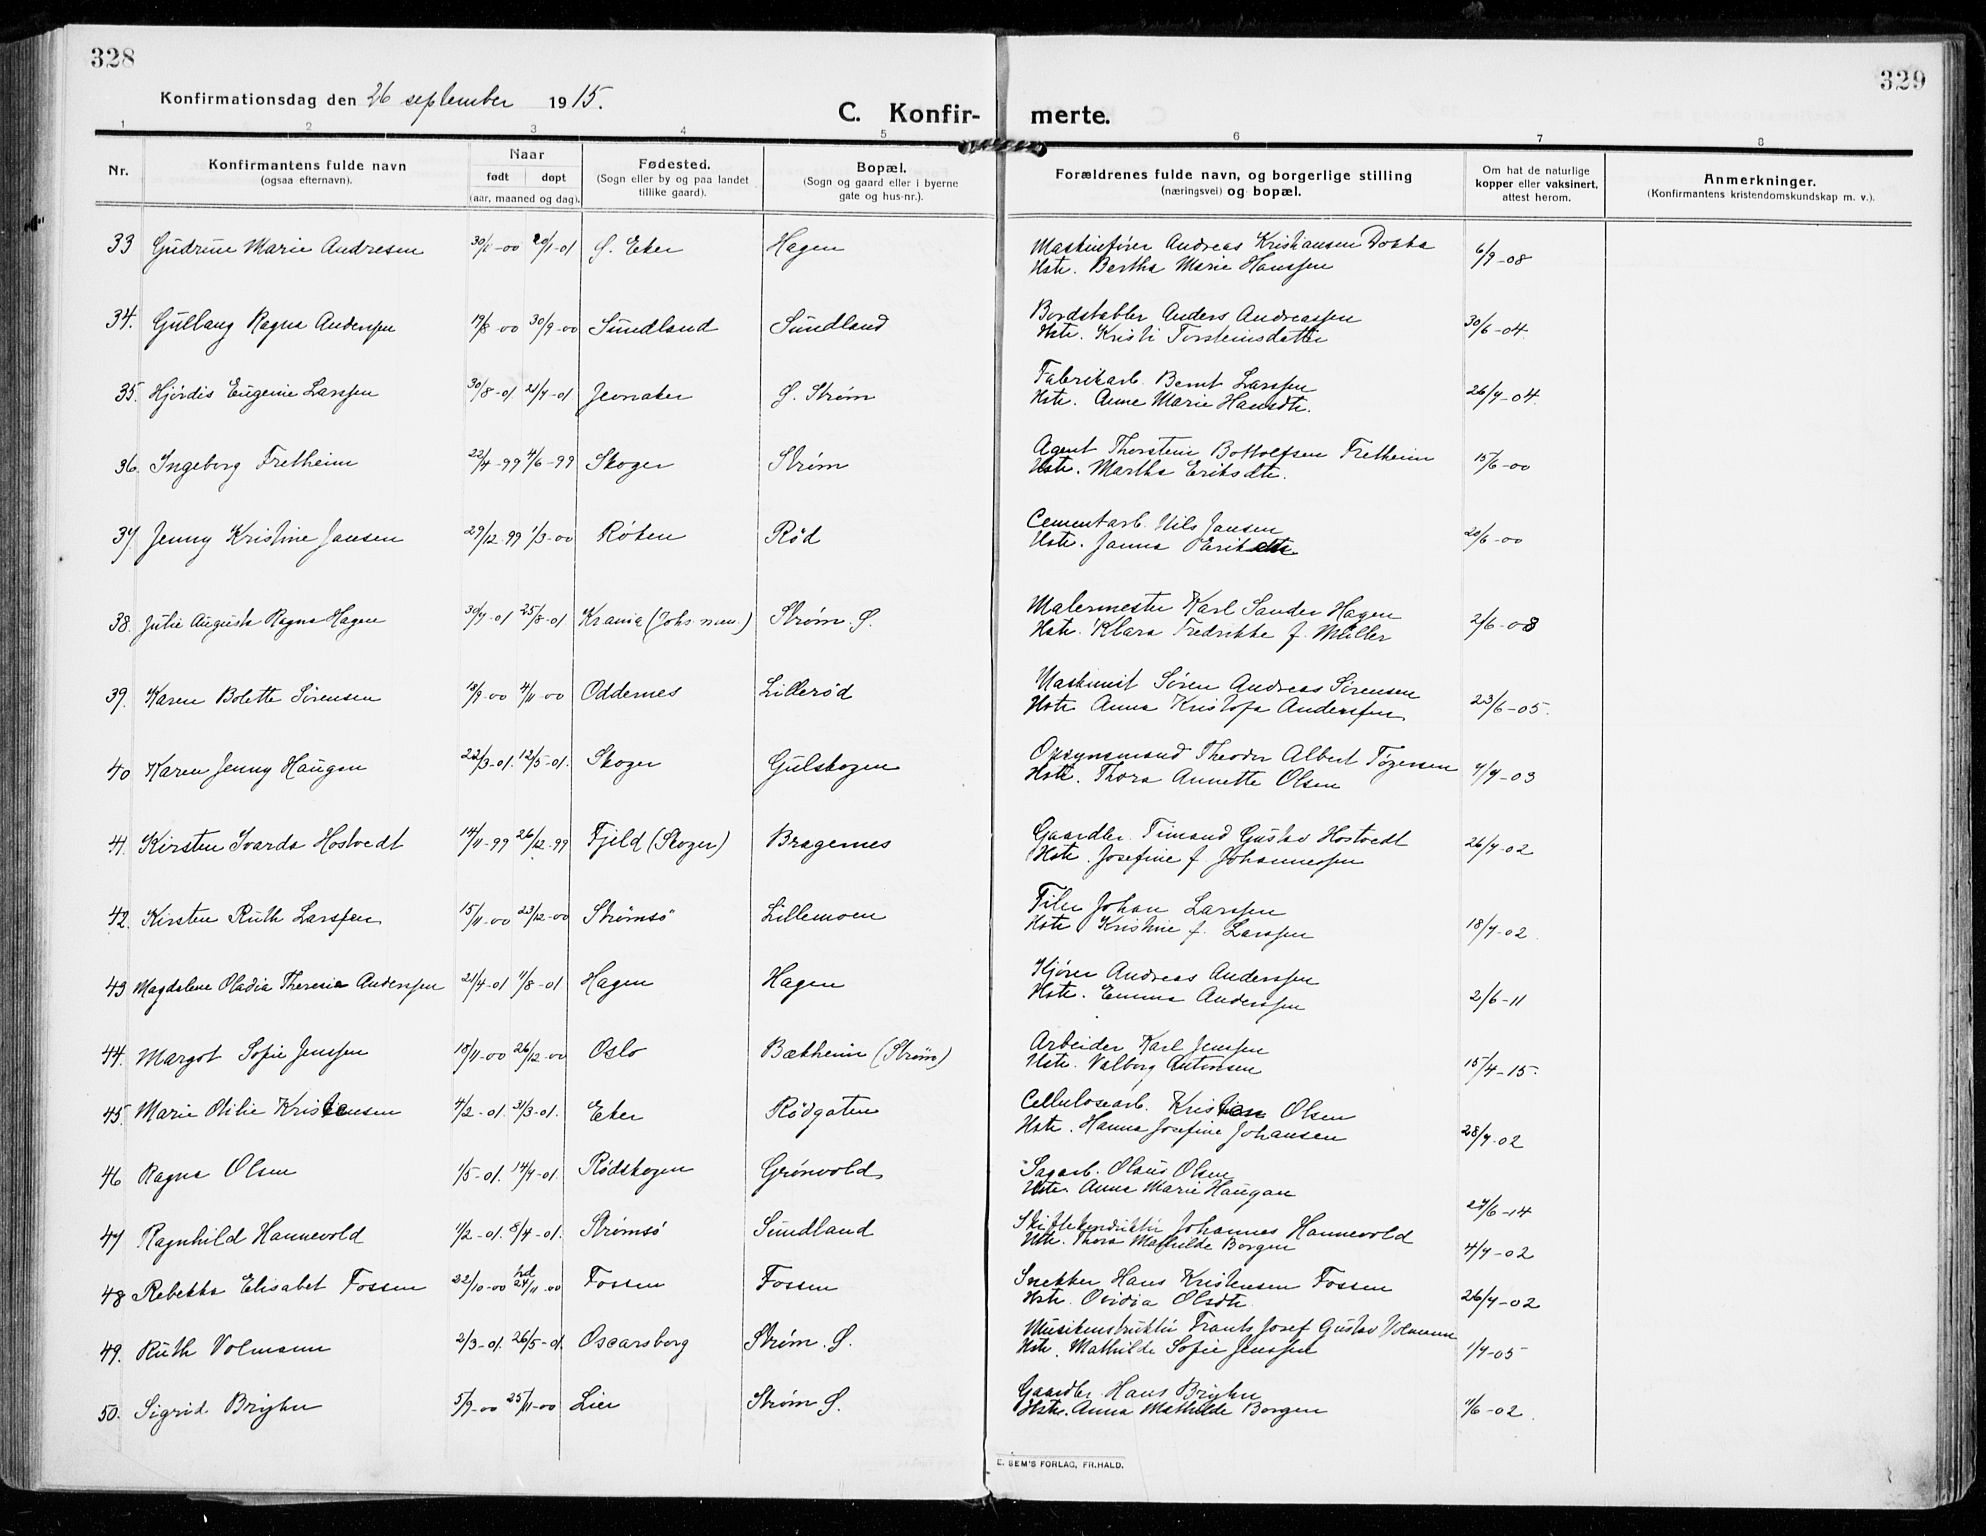 328
329
Konfirmationsdag den 26 september 1915.
C. Konfir- merte.
1 2 3 4 5 6 7 8
Nr.
Konfirmantens fulde navn
(ogsaa efternavn).
Naar
født døpt
(aar, maaned og dag).
Fødested.
(Sogn eller by og paa landet
tillike gaard).
Bopæl.
(Sogn og gaard eller i byerne
gate og hus-nr.).
Forældrenes fulde navn, og borgerlige stilling
(næringsvei) og bopæl.
Om hat de naturlige
kopper eller vaksinert,
attest herom.
Anmerkninger.
(Konfirmantens kristendomskundskap m. v.).
33 Gudrun Marie Andresen 30/11-00 20/1-01 Ø. Eker Hagen Maskinfører Andreas Kristiansen Dokka 6/9-08
Hstr. Bertha Marie Hanssen
34. Gullaug Ragna Anderssen 19/8-00 30/9-00 Sundland Sundland Bordstabler Anders Andreassen 30/6-04.
Hstr. Kristi Torsteinsdatter
35. Hjørdis Eugenie Larssen 30/8-01 Jevnaker Ø. Strøm Fabrikarb. Bernt Larssen 26/7-04.
Hstr. Anne Marie Hansdtr.
36. Ingeborg Fretheim 22/4-99 4/6-99 Skoger Strøm Agent Thorstein Bottolfsen Fretheim 15/6-00
Hstr. Martha Eriksdtr.
37 Jenny Kristine Jansen 29/12-99 1/3-00 Røken Rød Cementarb. Nils Jansen 20/6-00
Hstr. Janna
38. Julie Augusta Ragna Hagen 30/7-01 25/8-01 Krania (Johs. men.) Strøm. Ø. Malermester Karl Sander Hagen 2/6-08
Hstr. Klara Fredrikke f. Müller
39. Karen Bolette Sørensen 18/9-00 4/11-00 Oddernes Lillerød Maskinist Søren Andreas Sørensen 23/6-05.
Hstr. Anna Kristofa Anderssen
40 Karen Jenny Haugen 22/3-01. 12/5-01. Skoger Gulskogen Opsynsmand Theodor Albert Tøgersen 7/7-03
Hstr. Thora Annette Olsen
41. Kirsten Ivarda Hostvedt 14/11-99 26/12-99 Fjeld (Skoger) Bragernes Gaardbr. Timand Gustav Hostvedt 26/7-02
Hstr. Josefine f. Johannessen
42. Kirsten Ruth Larssen 15/11-00 23/12-00 Strømsø Lillemoen Filer Johan Larssen 18/7-02.
Hstr Kristine f. Larssen
43 Magdalene Oladia Theresie Anderssen 21/4-01 11/8-01 Hagen Hagen Kjører Andreas Anderssen 2/6-11
Hstr. Emma Anderssen
44. Margot Sofie Jenssen 18/11-00 26/12-00 Oslo Bækheim (Strøm) Arbeider Karl Jenssen 15/4-15.
Hstr. Valborg Antonsen
45. Marie Otilie Kristensen 4/2-01. 31/3-01. Eker Rødgaten Cellulosearb. Kristian Olsen 28/7-02
Hstr. Hanna Josefine Johansen
46 Ragna Olsen 1/5-01. 14/7-01. Rødskogen Grønvold Sagarb. Olaus Olsen 27/6-14
Hstr. Anna Marie Haugan
47 Ragnhild Hannevold 11/2-01. 8/4-01. Strømsø Sundland Skiftekonduktør Johannes Hannevold 4/7-02
Hstr. Thora Mathilde Borgen
48 Rebekka Elisabet Fossen 22/10-00 hd 24/11-00 Fossen Fossen Snekker Hans Kristensen Fossen 26/7-02
Hstr. Ovidia Olsdtr.
49. Ruth Volmann 2/3-01. 26/5-01. Oscarsborg Strøm. Ø. Musikinstruktør Frants Josef Gustav Volmann 1/7-05
Hstr. Mathilde Sofie Jenssen
50. Sigrid Bryhn 5/9-00 25/11-00 Lier Strøm Ø. Gaardbr. Hans Bryhn 11/6-02.
Hstr. Anna Mathilde Borgen
E. SEM'S FORLAG, FR.HALD.